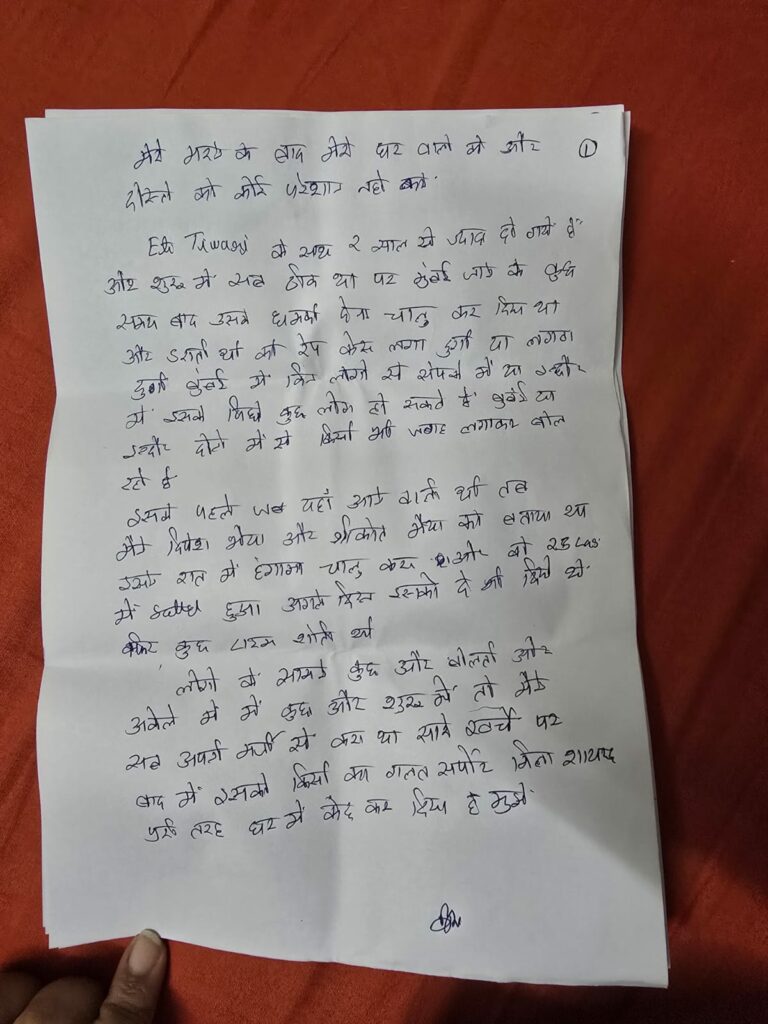 मेरे मरने के बाद मेरे घर वाले को और ①
दोस्तो को कोई परेशान नही करे
के साथ 2 साल से ज्यादा हो गये है
और शुरू में सब ठीक था पर मुंबई जाने के कुछ
समय बाद उसने धमकी देना चालु कर दिया था
और डराती थी की रेप केस लगा दुगीं या लगवा
दुगीं मुंबई में किन लोगो से संपर्क में या इन्दौर
में इसके पिछे कुछ लोग हो सकते है मुंबई या
इन्दौर दोनो में से किसी भी जगह लगाकर बोल
रहे है
इससे पहले जब यहाँ आने वाली थी तब
मैने भैया और श्रीकांत भैया को बताया था
इसने रात में हंगामा चालु करा और वो 25 Lac
में settel हुआ अगले दिन इसको दे भी दिये थे
फिर कुछ टाइम शांती थी
लोगो के सामने कुछ और बोलती और
अकेले में में कुछ और शुरू में तो मैने
सब अपनी मर्जी से करा था सारे खर्चे पर
बाद में इसको किसी का गलत सपोर्ट मिला शायद
पुरी तरह घर में केद कर दिया है मुझे